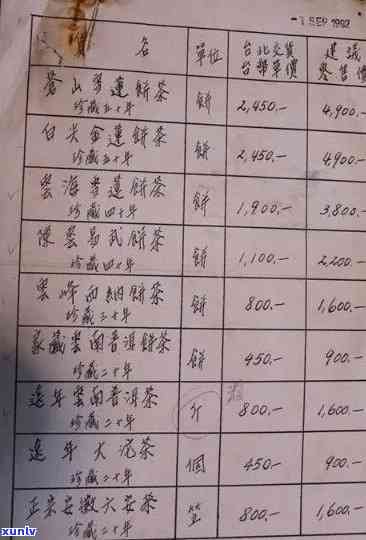 -1 SEP 1992
名 單位 台北交貨 建議
台幣單價 零售價
蒼山雪蓮餅茶 餅 2,450.- 4,900.-
珍藏五十年
白尖金蓮餅茶 餅 2,450.- 4,900.-
珍藏五十年
雲海雪蓮餅茶 餅 1,900.- 3,800.-
珍藏四十年
陳雲易武餅茶 餅 1,100.- 2,200.-
珍藏四十年
雲峰西納餅茶 餅 800.- 1,600.-
珍藏三十年
家藏雲南普洱餅茶 餅 450.- 900.-
珍藏二十年
遠年雲南普洱茶 斤 800.- 1,600.-
珍藏二十年
遠年大沱茶 個 450.- 900.-
珍藏二十年
正宗安徽六安茶 800.- 1,600.-
珍藏二十年
xunlv